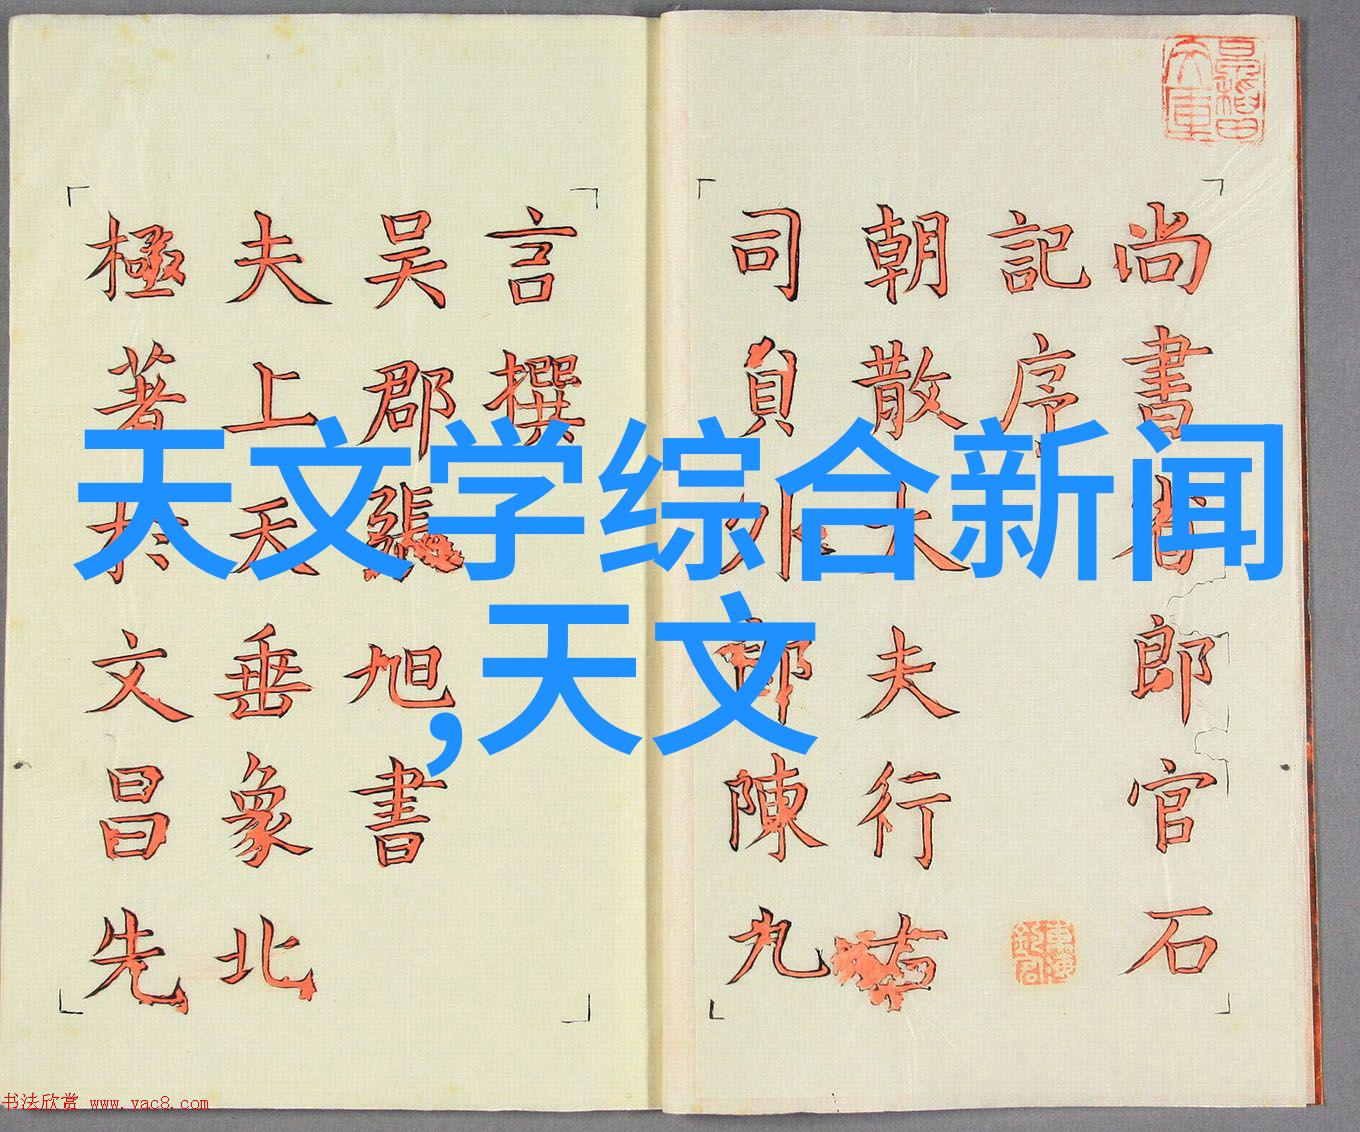 尚書省郎官石
記序
朝散大夫行右
司員外郎陳九
言撰
吴郡張旭書
夫上天垂象北
極著於文昌先
天文学综合新闻
,天文
书法欣赏 www.yac8.com